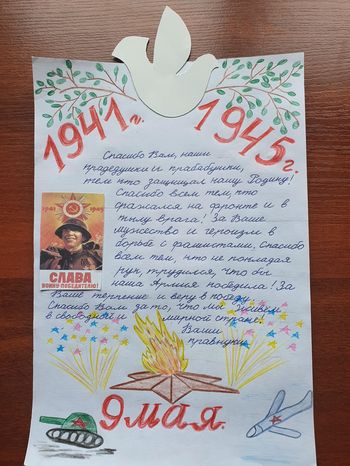 1941г. 1945г.
Спасибо Вам, наши
прадедушки и прабабушки,
тем что защищал нашу Родину!
Спасибо всем тем, кто
сражался на фронте и в
тылу врага! За Ваше
мужество и героизм в
борьбе с фашистами. Спасибо
вам тем, кто не покладая
рук, трудился, что бы
наша Армия победила! За
Ваше терпение и веру в победу.
Спасибо Вам за то, что мы живем
в свободной и мирной стране!
Ваши
правнуки.
1941 1945
СЛАВА
ВОИНУ-ПОБЕДИТЕЛЮ!
9 мая.